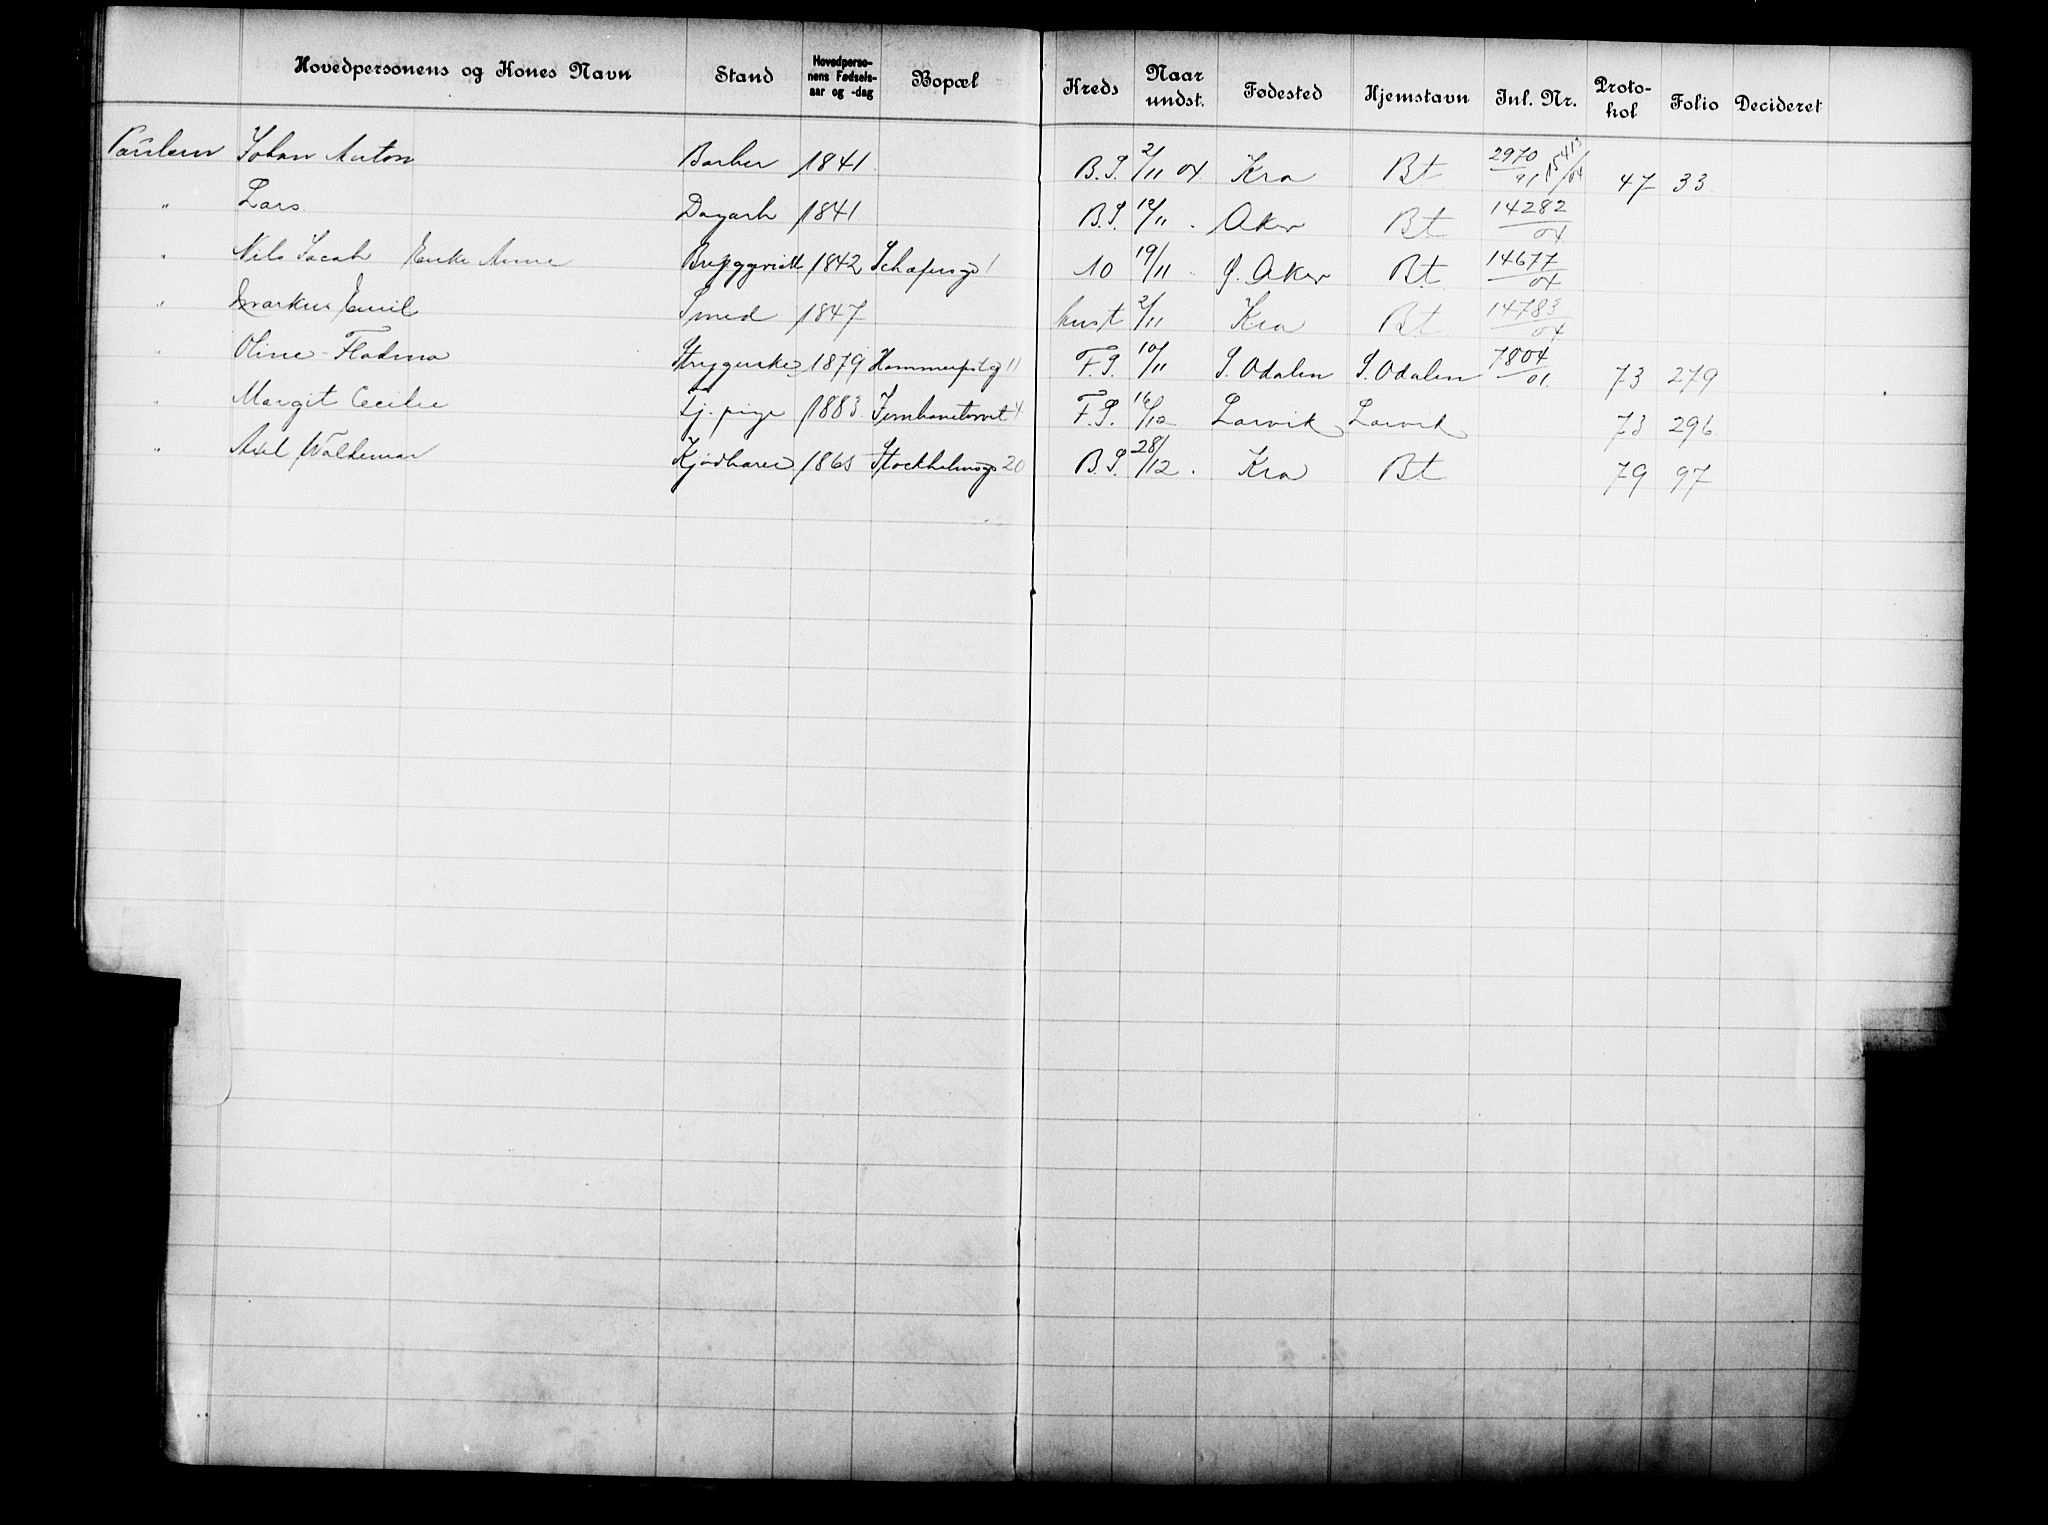 Hovedpersonens og Kones Navn Stand Hovedperso-nens Fødsels-aar og -dag Bopæl Kreds Naar undst. Fødested Hjemstavn Jnl. Nr. Proto-kol Folio Decideret
Paulsen Johan Anton Barber 1841 B.S. 2/11 04 Kra Bt 2970/91 15413/04 47 33
" Lars Dagarb 1841 B.S. 12/11 . Aker Bt 14282/04
" Nils Jacob Enke Anne 1842 1 10 19/11 " Ø. Aker Bt 14677/04
" Markus Emil Smed 1847 kust 2/11 Kra Bt 14783/04
" Oline 1879 Hammerfestg 11 F.S. 10/11 S. Odalen S. Odalen 7804/01 73 279
" Margit Cecilie Tj. pige 1883 Jernbanetorvet 4 F.S. 16/12 Larvik Larvik 73 296
" Axel Waldemar 1865 Stockholmsg 20 B.S. 28/12 . Kra Bt 79 97